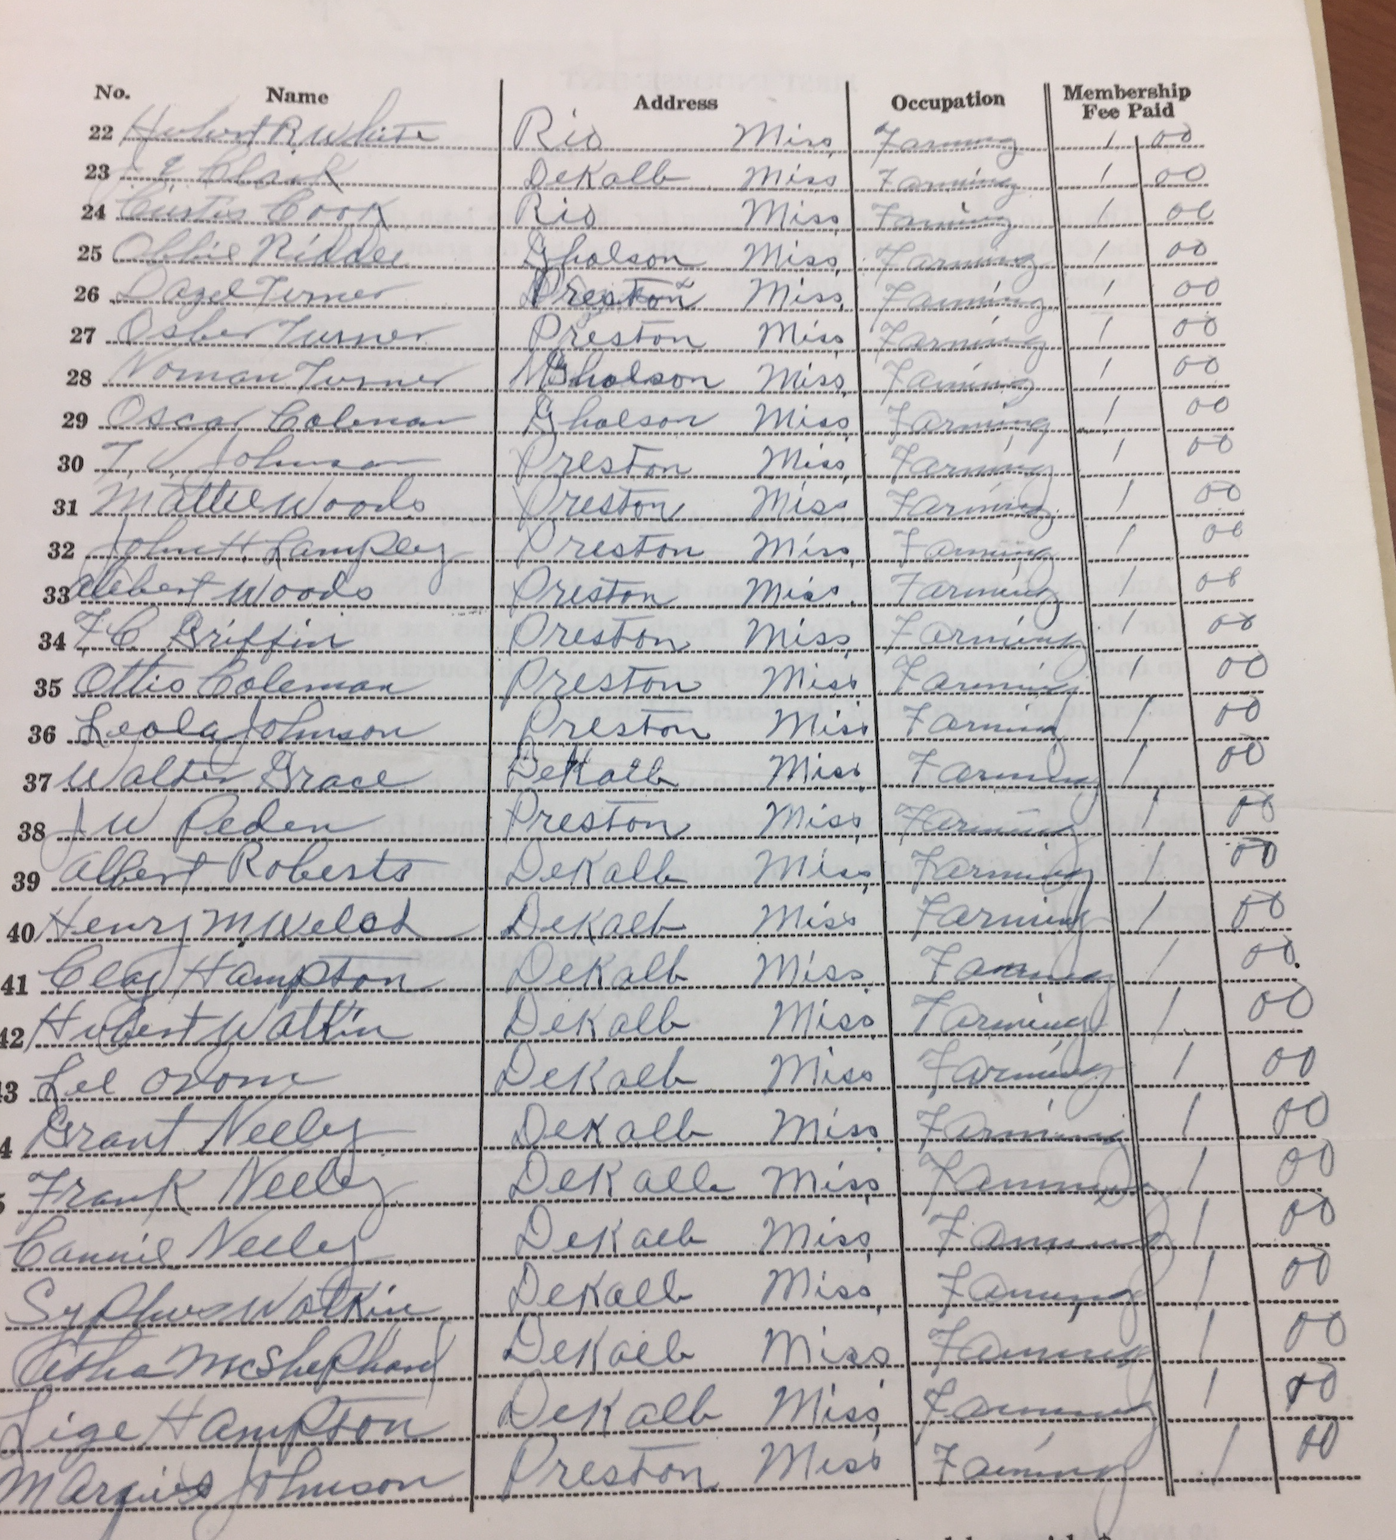 No. Name Address Occupation Membership Fee Paid
22 Hubert R. White Rio Miss. Farming 1 00
23 Black DeKalb Miss Farming 1 00
24 Curtis Cook Rio Miss, Farming 1 00
25 Ollie Riddle Gholson Miss, Farming 1 00
26 Dazel Terner Preston Miss, Farming 1 00
27 Osber Turner Preston Miss, Farming 1 00
28 Norman Turner Gholson Miss, Farming 1 00
29 Oscar Coleman Gholson Miss, Farming 1 00
30 T. V. Johnson Preston Miss, Farming 1 00
31 Mattie Woods Preston Miss, Farming 1 00
32 John H. Lampley Preston Miss, Farming 1 00
33 Albert Woods Preston Miss, Farming 1 00
34 F. C. Griffin Preston Miss, Farming 1 00
35 Ottis Coleman Preston Miss Farming 1 00
36 Leola Johnson Preston Miss Farming 1 00
37 Walter Grace DeKalb Miss, Farming 1 00
38 J W Peden Preston Miss, Farming 1 00
39 Albert Roberts DeKalb Miss, Farming 1 00
40 Henry M. Welch DeKalb Miss, Farming 1 00
41 Clay Hampton DeKalb Miss, Farming 1 00
42 Hubert Watkin DeKalb Miss, Farming 1 00
43 Lee Odom DeKalb Miss, Farming 1 00
4 Grant Neeley DeKalb Miss, Farming 1 00
5 Frank Neeley DeKalb Miss, Farming 1 00
Cannie Neeley DeKalb Miss, Farming 1 00
Syphus Watkin DeKalb Miss, Farming 1 00
McShephard DeKalb Miss, Farming 1 00
Lige Hampton DeKalb Miss, Farming 1 00
Johnson Preston Miss Farming 1 00